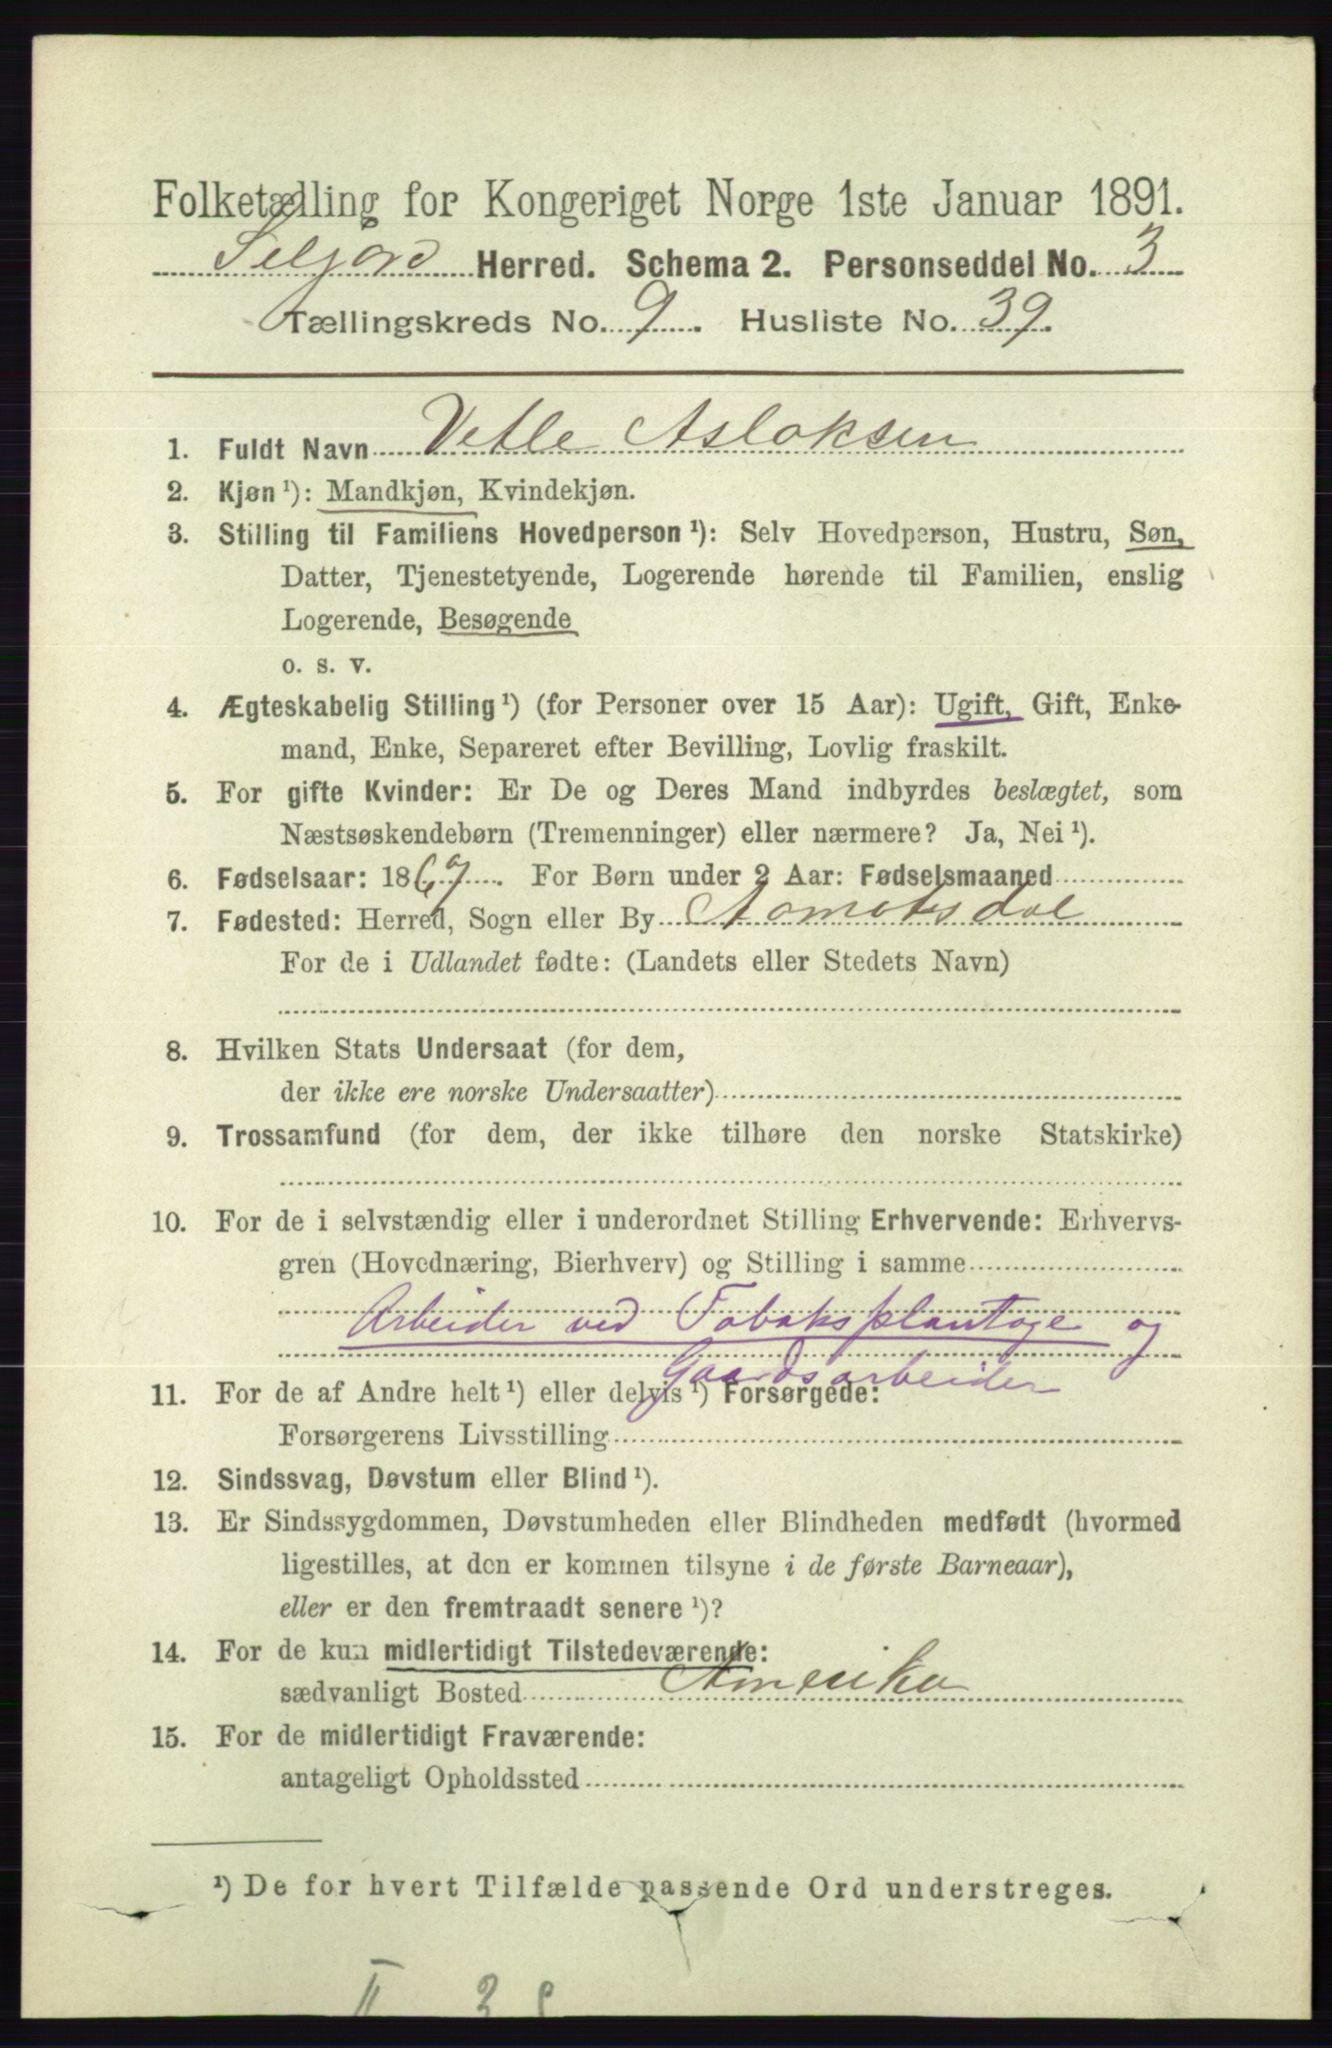 Folketælling for Kongeriget Norge 1ste Januar 1891.
Seljord Herred. Schema 2. Personseddel No. 3
Tællingskreds No. 9. Husliste No. 39.
1. Fuldt Navn Vetle Asloksen
2. Kjøn ¹): Mandkjøn, Kvindekjøn.
3. Stilling til Familiens Hovedperson ¹): Selv Hovedperson, Hustru, Søn,
Datter, Tjenestetyende, Logerende hørende til Familien, enslig
Logerende, Besøgende
o. s. v.
4. Ægteskabelig Stilling ¹) (for Personer over 15 Aar): Ugift, Gift, Enke-
mand, Enke, Separeret efter Bevilling, Lovlig fraskilt.
5. For gifte Kvinder: Er De og Deres Mand indbyrdes beslægtet, som
Næstsøskendebørn (Tremenninger) eller nærmere? Ja, Nei ¹).
6. Fødselsaar: 1867. For Børn under 2 Aar: Fødselsmaaned
7. Fødested: Herred, Sogn eller By Aamotsdal
For de i Udlandet fødte: (Landets eller Stedets Navn)
8. Hvilken Stats Undersaat (for dem,
der ikke ere norske Undersaatter)
9. Trossamfund (for dem, der ikke tilhøre den norske Statskirke)
10. For de i selvstændig eller i underordnet Stilling Erhvervende: Erhvervs-
gren (Hovednæring, Bierhverv) og Stilling i samme
Arbeider ved Tobaksplantage og
Gaardsarbeider
11. For de af Andre helt ¹) eller delvis ¹) Forsørgede:
Forsørgerens Livsstilling
12. Sindssvag, Døvstum eller Blind ¹).
13. Er Sindssygdommen, Døvstumheden eller Blindheden medfødt (hvormed
ligestilles, at den er kommen tilsyne i de første Barneaar),
eller er den fremtraadt senere ¹)?
14. For de kun midlertidigt Tilstedeværende:
sædvanligt Bosted Amerika
15. For de midlertidigt Fraværende:
antageligt Opholdssted
¹) De for hvert Tilfælde passende Ord understreges.
II